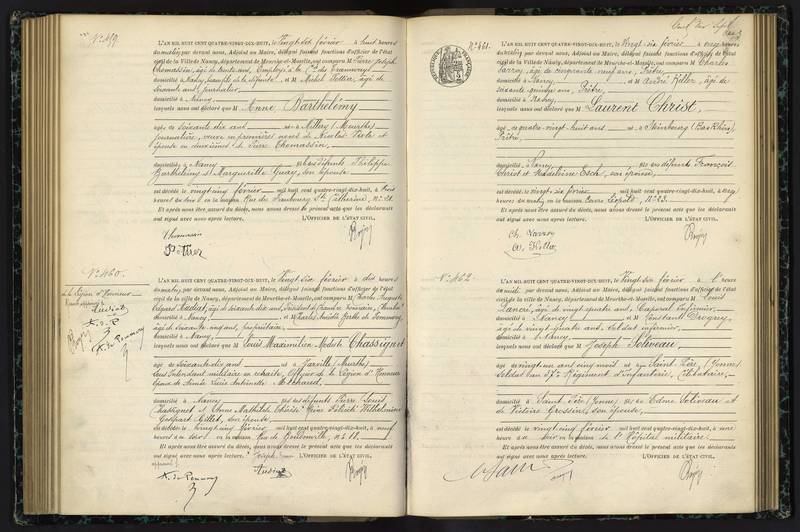 N° 459.
L'AN MIL HUIT CENT QUATRE-VINGT-DIX-HUIT, le Vingt six février à huit heures
du matin, par devant nous, Adjoint au Maire, délégué faisant fonctions d'officier de l'état
civil de la Ville de Nancy, département de Meurthe-et-Moselle, ont comparu M Pierre Joseph
Thomassin, âgé de trente ans, Employé à la Cie des Tramways
domicilié à Nancy, et M Michel Pottier, âgé de
soixante ans, journalier
domicilié à Nancy
lesquels nous ont déclaré que M Anne Barthélemy
âgée de soixante dix ans née à Millery (Meurthe)
journalière, veuve en premières noces de Nicolas et
épouse en deuxièmes de Pierre Thomassin,
domiciliée à Nancy des défunts Philippe
Barthélemy et Marguerite Guay, son épouse
est décédée le vingt cinq février mil huit cent quatre-vingt-dix-huit, à trois
heures du soir en sa maison Rue du Faubourg Ste Catherine, N° 21.
Et après nous être assuré du décès, nous avons dressé le présent acte que les déclarants
ont signé avec nous après lecture. L'OFFICIER DE L'ÉTAT CIVIL,
Thomassin
N° 460.
L'AN MIL HUIT CENT QUATRE-VINGT-DIX-HUIT, le Vingt six février à dix heures
du matin, par devant nous, Adjoint au Maire, délégué faisant fonctions d'officier de l'état
civil de la ville de Nancy, département de Meurthe-et-Moselle, ont comparu M Charles Auguste
âgé de soixante dix ans,
domicilié à Nancy et M Charles
âgé de soixante ans, propriétaire,
domicilié à Nancy
lesquels nous ont déclaré que M Louis Maximilien Modeste Chassignet
âgé de soixante dix ans né à Jarville (Meurthe)
Sous Intendant militaire en retraite, Officier de la Légion d'Honneur
époux de Aimée Marie Antoinette
domicilié à Nancy des défunts Pierre Louis
Chassignet et Anne Mathilde Wilhelmine
Gillet, son épouse
est décédé le vingt cinq février mil huit cent quatre-vingt-dix-huit, à neuf
heures du soir en sa maison Rue de Boudonville, N° 11.
Et après nous être assuré du décès, nous avons dressé le présent acte que les déclarants
ont signé avec nous après lecture. L'OFFICIER DE L'ÉTAT CIVIL,
de la Légion d'honneur
N° 461.
L'AN MIL HUIT CENT QUATRE-VINGT-DIX-HUIT, le Vingt six février à onze heures
du matin, par devant nous, Adjoint au Maire, délégué faisant fonctions d'officier de l'état
civil de la Ville de Nancy, département de Meurthe-et-Moselle, ont comparu M Charles
âgé de cinquante neuf ans, Prêtre,
domicilié à Nancy et M André Koller, âgé de
soixante quinze ans, Prêtre,
domicilié à Nancy,
lesquels nous ont déclaré que M Laurent Christ,
âgé de quatre-vingt huit ans né à Steinbourg (Bas Rhin)
Prêtre,
domicilié à Nancy, des défunts François
Christ et Madeleine Esch, son épouse,
est décédé le vingt six février mil huit cent quatre-vingt-dix-huit, à
heures du matin en sa maison Cours Léopold, N° 23.
Et après nous être assuré du décès, nous avons dressé le présent acte que les déclarants
ont signé avec nous après lecture. L'OFFICIER DE L'ÉTAT CIVIL,
N° 462
L'AN MIL HUIT CENT QUATRE-VINGT-DIX-HUIT, le Vingt six février à 1 heure
du midi, par devant nous, Adjoint au Maire, délégué faisant fonctions d'officier de l'état
civil de la ville de Nancy, département de Meurthe-et-Moselle, ont comparu M Louis
âgé de vingt quatre ans, Caporal Infirmier,
domicilié à Nancy et M Constant
âgé de vingt quatre ans, Soldat infirmier,
domicilié à Nancy
lesquels nous ont déclaré que M Joseph Soliveau
âgé de vingt un ans cinq mois né à Saint Père (Yonne)
Soldat au 37e Régiment d'Infanterie, Célibataire,
domicilié à Saint Père (Yonne) Edme Soliveau et
de Victoire Grossin, son épouse,
est décédé le vingt cinq février mil huit cent quatre-vingt-dix-huit, à une
heure du soir en la maison de l'Hôpital militaire.
Et après nous être assuré du décès, nous avons dressé le présent acte que les déclarants
ont signé avec nous après lecture. L'OFFICIER DE L'ÉTAT CIVIL,